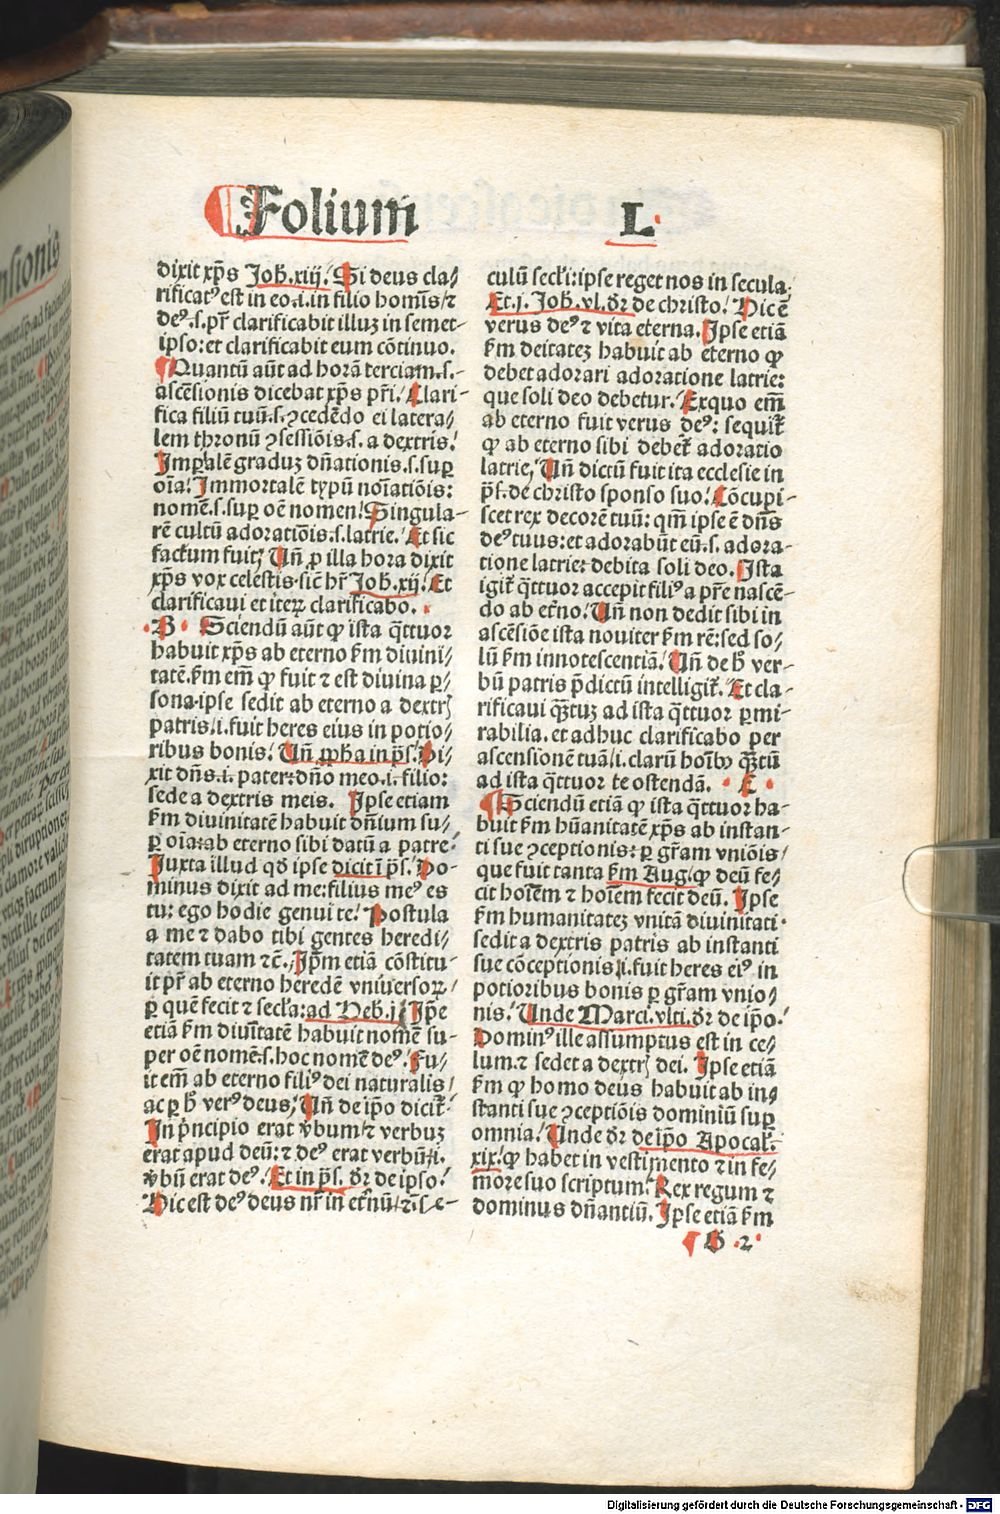 Folium L.
dixit xp̄s Joh̄.xiij. Si deus cla⸗
rificatꝰ est in eo.i.in filio homīs/⁊
deꝰ.s.pr̄ clarificabit illuꝫ in semet⸗
ipso:et clarificabit eum cōtinuo.
Quantū aūt ad horā terciam.s.
ascēsionis dicebat xp̄s pr̄i. Clari⸗
fica filiū tuū.s.ꝯcedēdo ei latera⸗
lem thronū ꝯsessiōis.s. a dextris.
Imp̄alē graduꝫ dn̄ationis.s.suꝑ
oīa. Immortalē typū noīatiōis:
nomē.s.suꝑ oē nomen. Singula⸗
rē cultū adoratiōis.s.latrie. Et sic
factum fuit. Un̄ ꝓ illa hora dixit
xp̄s vox celestis.sic̄ hr̄ Joh̄.xij. Et
clarificaui et iteꝝ clarificabo.
B Sciendū aūt ꝙ ista q̄ttuor
habuit xp̄s ab eterno s̄m diuini⸗
tatē.s̄m em̄ ꝙ fuit ⁊ est diuina ꝑ⸗
sona.ipse sedit ab eterno a dextꝭ
patris/i.fuit heres eius in potio⸗
ribus bonis. Un̄ ꝓph̄a in ps̄. Di⸗
xit dn̄s.i. pater:dn̄o meo.i.filio:
sede a dextris meis. Ipse etiam
s̄m diuinitatē habuit dn̄ium su⸗
ꝑ oīa:ab eterno sibi datū a patre.
Juxta illud qd̄ ipse dicit ī ps̄. Do⸗
minus dixit ad me:filius meꝰ es
tu: ego hodie genui te. Postula
a me ⁊ dabo tibi gentes heredi⸗
tatem tuam ⁊c̄. Ip̄m etiā cōstitu⸗
it pr̄ ab eterno heredē vniuersoꝝ/
ꝑ quē fecit ⁊ secl̄a:ad Heb.j. Ip̄e
etiā s̄m diuītatē habuit nomē su⸗
per oē nomē.s.hoc nomē deꝰ. Fu⸗
it em̄ ab eterno filiꝰ dei naturalis/
ac ꝑ h̄ verꝰ deus. Un̄ de ip̄o dicit̄.
In p̄ncipio erat v̄bum/⁊ verbuꝫ
erat apud deū: ⁊ deꝰ erat verbū.i.
v̄bū erat deꝰ. Et in ps̄. dr̄ de ipso.
Hic est deꝰ deus nr̄ in et̄nū/⁊ ī se⸗
culū secl̄i:ipse reget nos in secula.
Et.j. Joh̄.vl. dr̄ de christo. Hic ē
verus deꝰ ⁊ vita eterna. Ipse etiā
s̄m deitateꝫ habuit ab eterno ꝙ
debet adorari adoratione latrie:
que soli deo debetur. Exquo em̄
ab eterno fuit verus deꝰ: sequit̄
ꝙ ab eterno sibi debet̄ adoratio
latrie. Un̄ dictū fuit ita ecclesie in
ps̄.de christo sponso suo. Cōcupi⸗
scet rex decorē tuū: qm̄ ipse ē dn̄s
deꝰ tuus:et adorabūt eū.s. adora⸗
tione latrie: debita soli deo. Ista
igit̄ q̄ttuor accepit filiꝰ a pr̄e nascē⸗
do ab et̄no. Un̄ non dedit sibi in
ascēsiōe ista nouiter s̄m rē:sed so⸗
lū s̄m innotescentiā. Un̄ de h̄ ver⸗
bū patris p̄dictū intelligit̄. Et cla⸗
rificaui qꝫtuꝫ ad ista q̄ttuor ꝑ mi⸗
rabilia.et adhuc clarificabo per
ascensionē tuā/i.clarū hoībꝰ qꝫtū
ad ista q̄ttuor te ostendā. E
Sciendū etiā ꝙ ista q̄ttuor ha⸗
buit s̄m hūanitatē xp̄s ab instan⸗
ti sue ꝯceptionis: ꝑ gr̄am vniōis/
que fuit tanta s̄m Aug. ꝙ deū fe⸗
cit hoīem ⁊ hoīem fecit deū. Ipse
s̄m humanitateꝫ vnitā diuinitati.
sedit a dextris patris ab instanti
sue cōceptionis/i.fuit heres eiꝰ in
potioribus bonis ꝑ gr̄am vnio⸗
nis. Unde Marci.vlti.dr̄ de ip̄o.
Dominꝰ ille assumptus est in ce⸗
lum.⁊ sedet a dextꝭ dei. Ipse etiā
s̄m ꝙ homo deus habuit ab in⸗
stanti sue ꝯceptiōis dominiū suꝑ
omnia. Unde dr̄ de ip̄o Apocal̄.
xix. ꝙ habet in vestimento ⁊ in fe⸗
more suo scriptum. Rex regum ⁊
dominus dn̄antiū. Ipse etiā s̄m
2
Digitalisierung gefördert durch die Deutsche Forschungsgemeinschaft - DFG